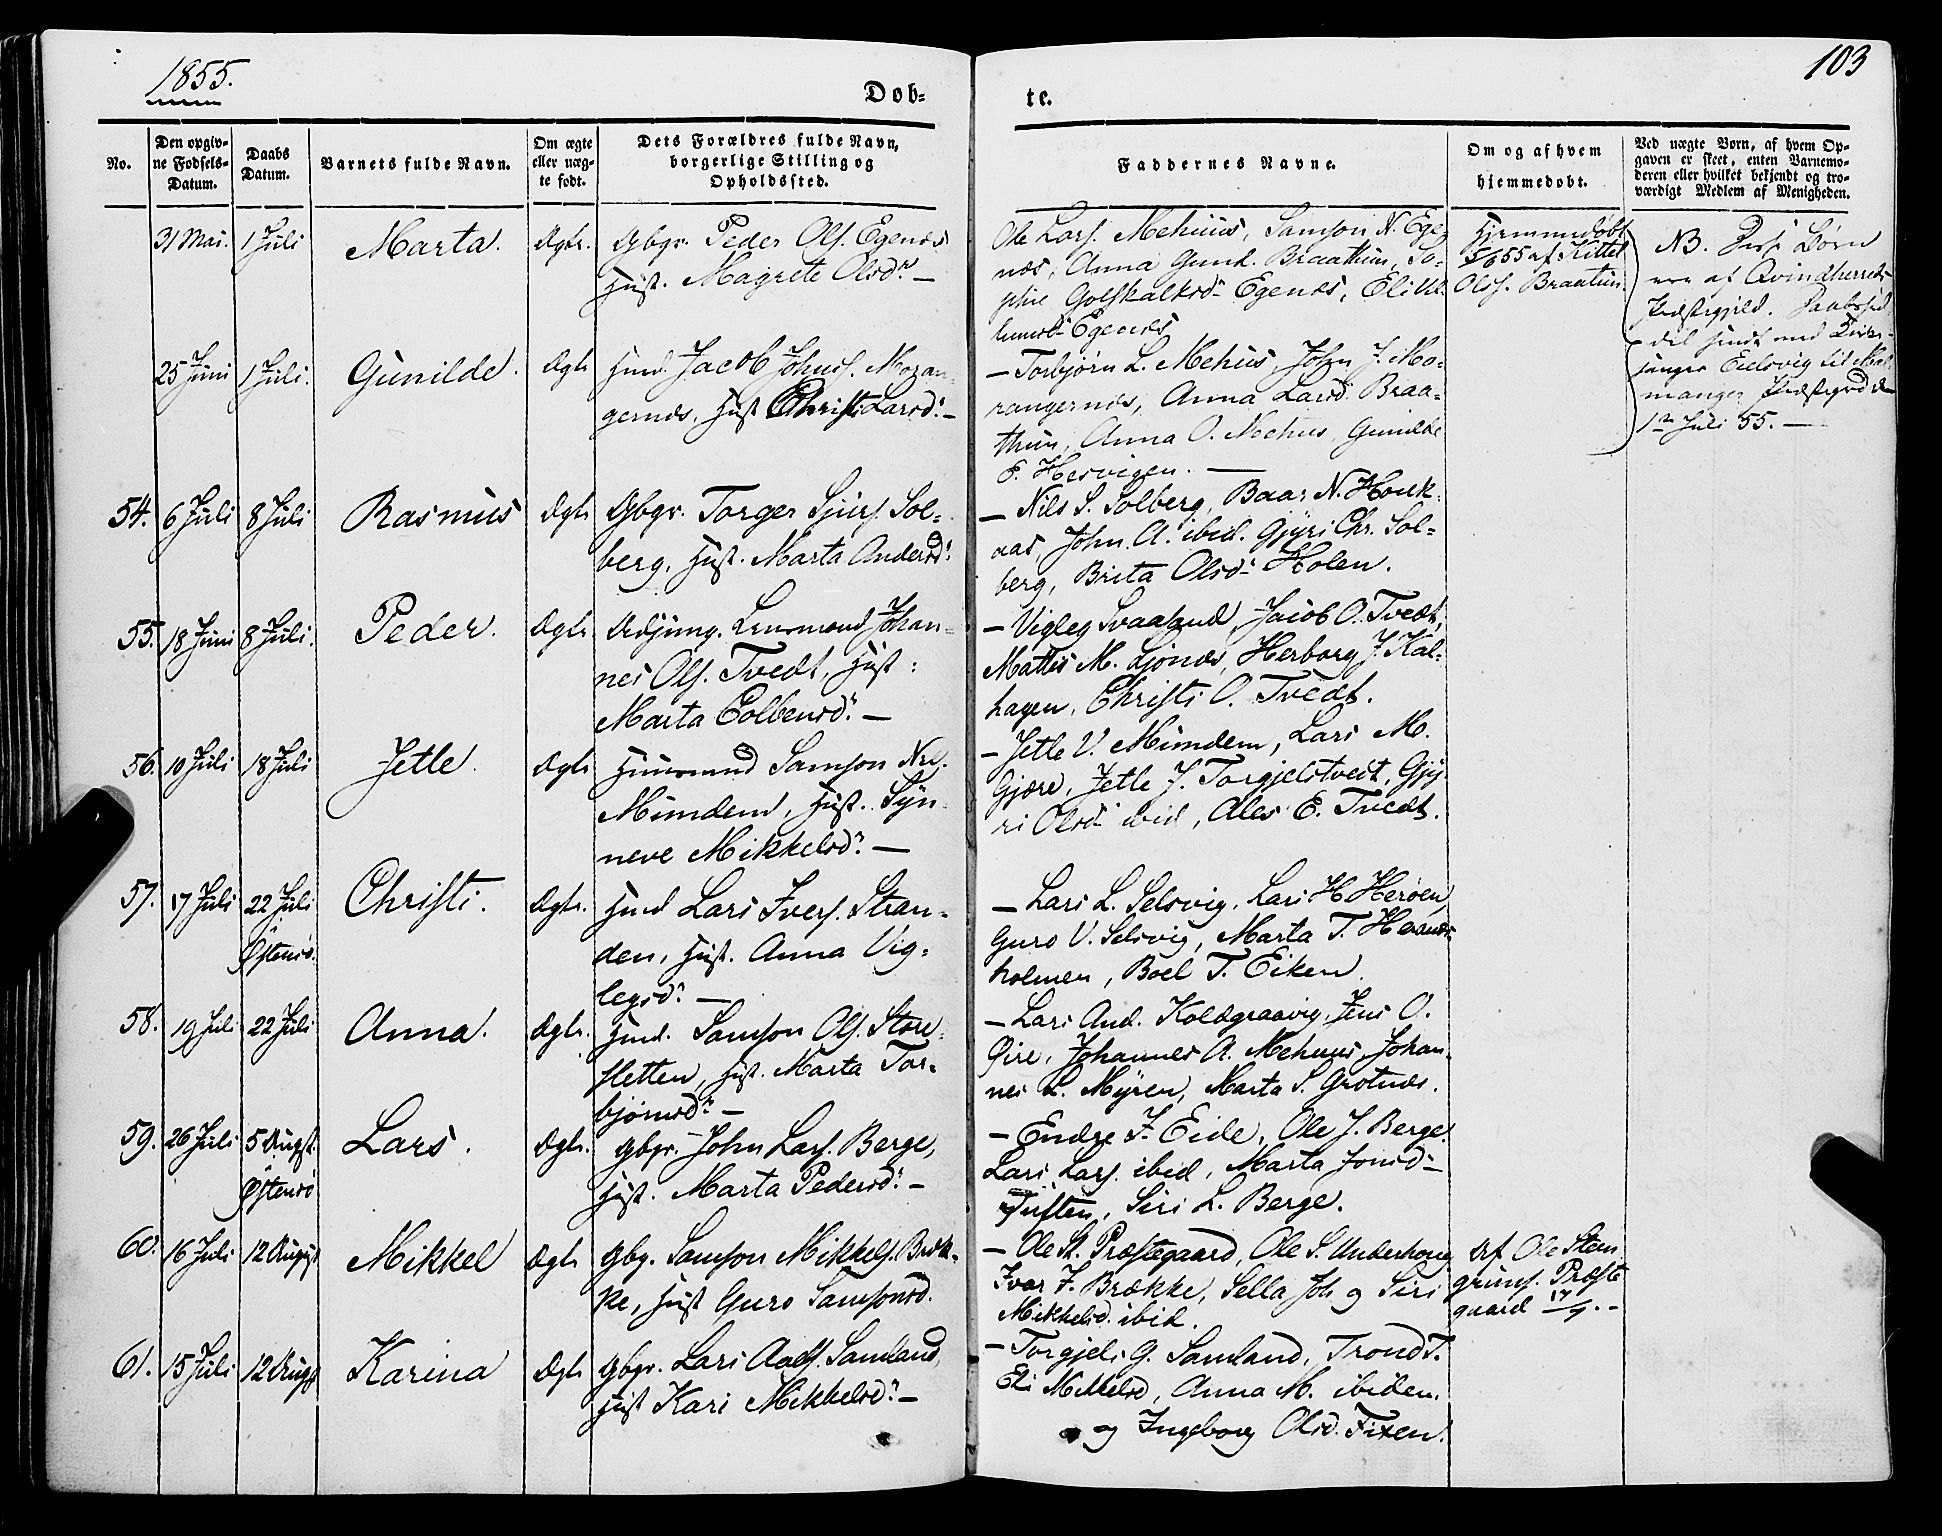 1855.
103
Døb-
te.
No.
Den opgiv-
ne Fødsels-
Datum.
Daabs
Datum.
Barnets fulde Navn.
Om ægte
eller uæg-
te født.
Dets Forældres fulde Navn,
borgerlige Stilling og
Opholdssted.
Faddernes Navne.
Om og af hvem
hjemmedøbt.
Ved uægte Børn, af hvem Op-
gaven er skeet, enten Barnemo-
deren eller hvilket bekjendt og tro-
værdigt Medlem af Menigheden.
31 Mai. 1 Juli Marta. Ægte. Gbgr. Peder Ols. Egenæs
Hust. Magrete Olsdr. —
Ole Lars. Mehuus, Samson N. Ege-
næs, Anna Gund. Braathun, So-
phie Golskalksdr Egenæs, Eli
Egenæs
Hjemmedøbt
5/6 55 af Kittel
Olss. Braatun.
NB. Disse Børn
ere af Qvindherreds
Præstegjeld.
Eidsvig til Mal-
manger Præstegrd d.
1ste Juli 55. —
25 Juni 1 Juli. Gunilde. Ægte Hmd. Jacob Johns. Moran-
gernæs, Hust Christi Larsd: —
— Torbjørn L. Mehus, John J. Mo-
rangernæs, Anna Larsd Braa-
thun, Anna O. Mehus, Gunilde
E. Hesvigen. —
54. 6 Juli 8 Juli Rasmus Ægte Gbgr. Torger Sjurs. Sol-
berg, Hust. Marta Andersd:
— Nils S. Solberg, Baar N. Houk-
aas, John A. ibid. Gjyri Chr. Sol-
berg, Brita Olsd. Holen.
55. 18 Juni 8 Juli. Peder. Ægte Adjung. Lensmand Johan-
nes Ols. Tvedt, Hust:
Marta Colbensd: —
— Vigleg Svaasand, Jacob O. Tvedt,
Mattis M. Ljonæs, Herborg J. Kal-
hagen, Christi O. Tvedt.
56. 10 Juli 18 Juli Jetle. Ægte Huusmand Samson Nil.
Mundem, Hust. Syn-
neve Mikkelsd: —
— Jetle V. Mundem, Lars M.
Gjære, Jetle J. Torgjelstveit, Gjy-
ri Olsd ibid, Ales E. Tvedt.
57. 17 Juli 22 Juli Christi. Ægte. Hmd Lars Ivers. Stran-
Østensø.
den, Hust. Anna Vig-
legsd: —
— Lars L. Selsvig, Lars H Herøen,
Guro V. Selsvig, Marta T. Herands-
holmen, Boel T. Eiken.
58. 19 Juli 22 Juli Anna. Ægte. Hmd. Samson Ols. Store-
fletten, Hust. Marta Tor-
bjørnsd: —
— Lars And. Koldgraavig, Jens O.
Øire, Johannes A. Mehuus, Johan-
nes L. Myren, Marta S. Grotnæs.
59. 26 Juli 5 Augst. Lars. Ægte. Gbgr. John Lars. Berge,
Østensø
Hust. Marta Pedersd: —
— Endre J. Eide, Ole J. Berge,
Lars Lars. ibid, Marta Jonsd:
Tuften, Siri L. Berge.
60. 16 Juli 12 Augst Mikkel Ægte Gbg. Samson Mikkels. Bræk-
ke, Hust Guro Samsonsd.
— Ole St. Præstegaard, Ole S. Underhoug
Ivar J. Brække, Sella Joh og Siri
Mikkelsd. ibid.
Af Ole Stein-
grims. Præste-
gaard 17/7. —
61. 15 Juli 12 Augst Karina Ægte Gbgr. Lars Aads. Samland,
Hust Kari Mikkelsd: —
— Torgjels G. Samland, Trond T.
Eli Mikkelsd, Anna M. ibiden.
og Ingeborg Olsd. Fixen.